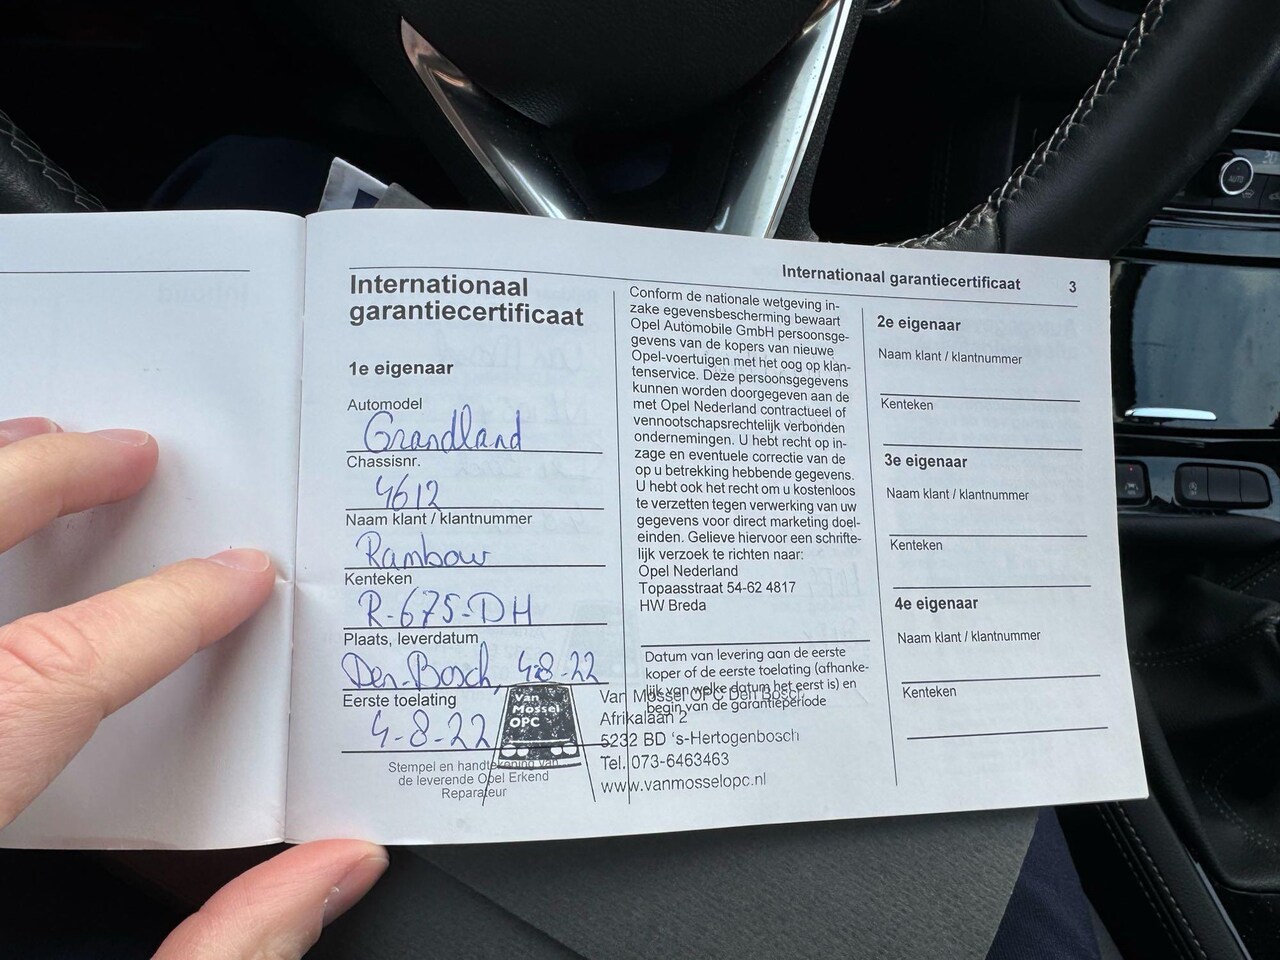 Internationaal garantiecertificaat 3
Internationaal
garantiecertificaat
1e eigenaar
Automodel
Grandland
Chassisnr.
4612
Naam klant / klantnummer
Rambow
Kenteken
R-675-DH
Plaats, leverdatum
Den-Bosch, 4-8-22
Eerste toelating
4-8-22
Stempel en handtekening van
de leverende Opel Erkend
Reparateur
Van
Mossel
OPC
Conform de nationale wetgeving in-
zake egevensbescherming bewaart
Opel Automobile GmbH persoonsge-
gevens van de kopers van nieuwe
Opel-voertuigen met het oog op klan-
tenservice. Deze persoonsgegevens
kunnen worden doorgegeven aan de
met Opel Nederland contractueel of
vennootschapsrechtelijk verbonden
ondernemingen. U hebt recht op in-
zage en eventuele correctie van de
op u betrekking hebbende gegevens.
U hebt ook het recht om u kostenloos
te verzetten tegen verwerking van uw
gegevens voor direct marketing doel-
einden. Gelieve hiervoor een schrifte-
lijk verzoek te richten naar:
Opel Nederland
Topaasstraat 54-62 4817
HW Breda
Datum van levering aan de eerste
koper of de eerste toelating (afhanke-
lijk van welke datum het eerst is) en
begin van de garantieperiode
Van Mossel OPC Den Bosch
Afrikalaan 2
5232 BD 's-Hertogenbosch
Tel. 073-6463463
www.vanmosselopc.nl
2e eigenaar
Naam klant / klantnummer
Kenteken
3e eigenaar
Naam klant / klantnummer
Kenteken
4e eigenaar
Naam klant / klantnummer
Kenteken
AUTO